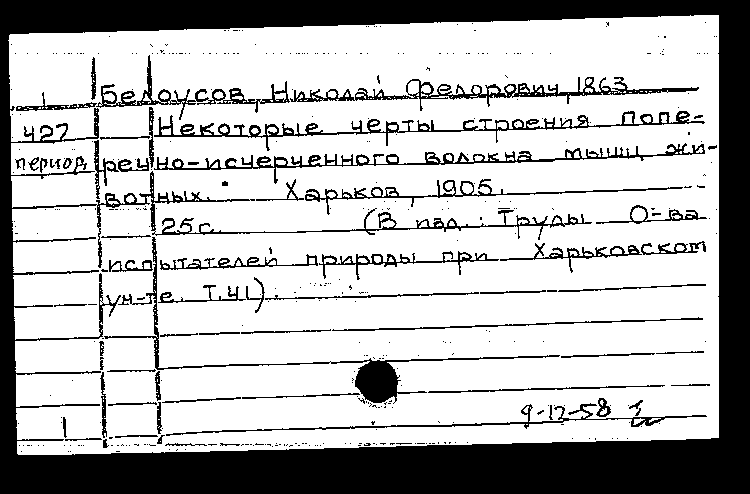 1 Белоусов, Николай Федорович, 1863
427 Некоторые черты строения попе-
период речно-исчерченного волокна мышц жи-
вотных. Харьков, 1905.
25с. (В изд.: Труды О-ва
испытателей природы при Харьковском
ун-те. Т.41).
9-12-58
1